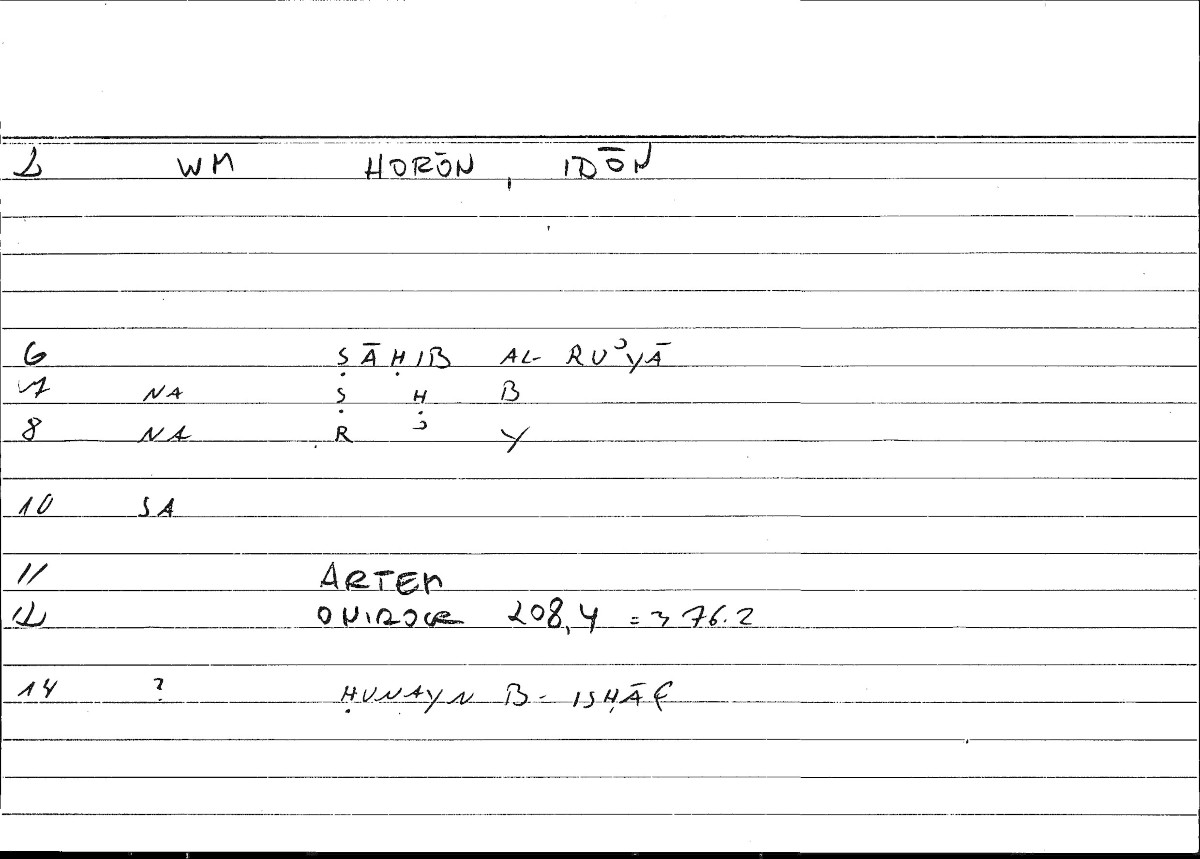 2 WM HORŌN, IDŌN
6 ṢĀḤIB AL- RUʾYĀ
7 NA Ṣ Ḥ B
8 NA R ʾ Y
10 SA
11 ARTEM
12 ONIROCR 208,4 = 376.2
14 ? ḤUNAYN B- ISḤĀḲ